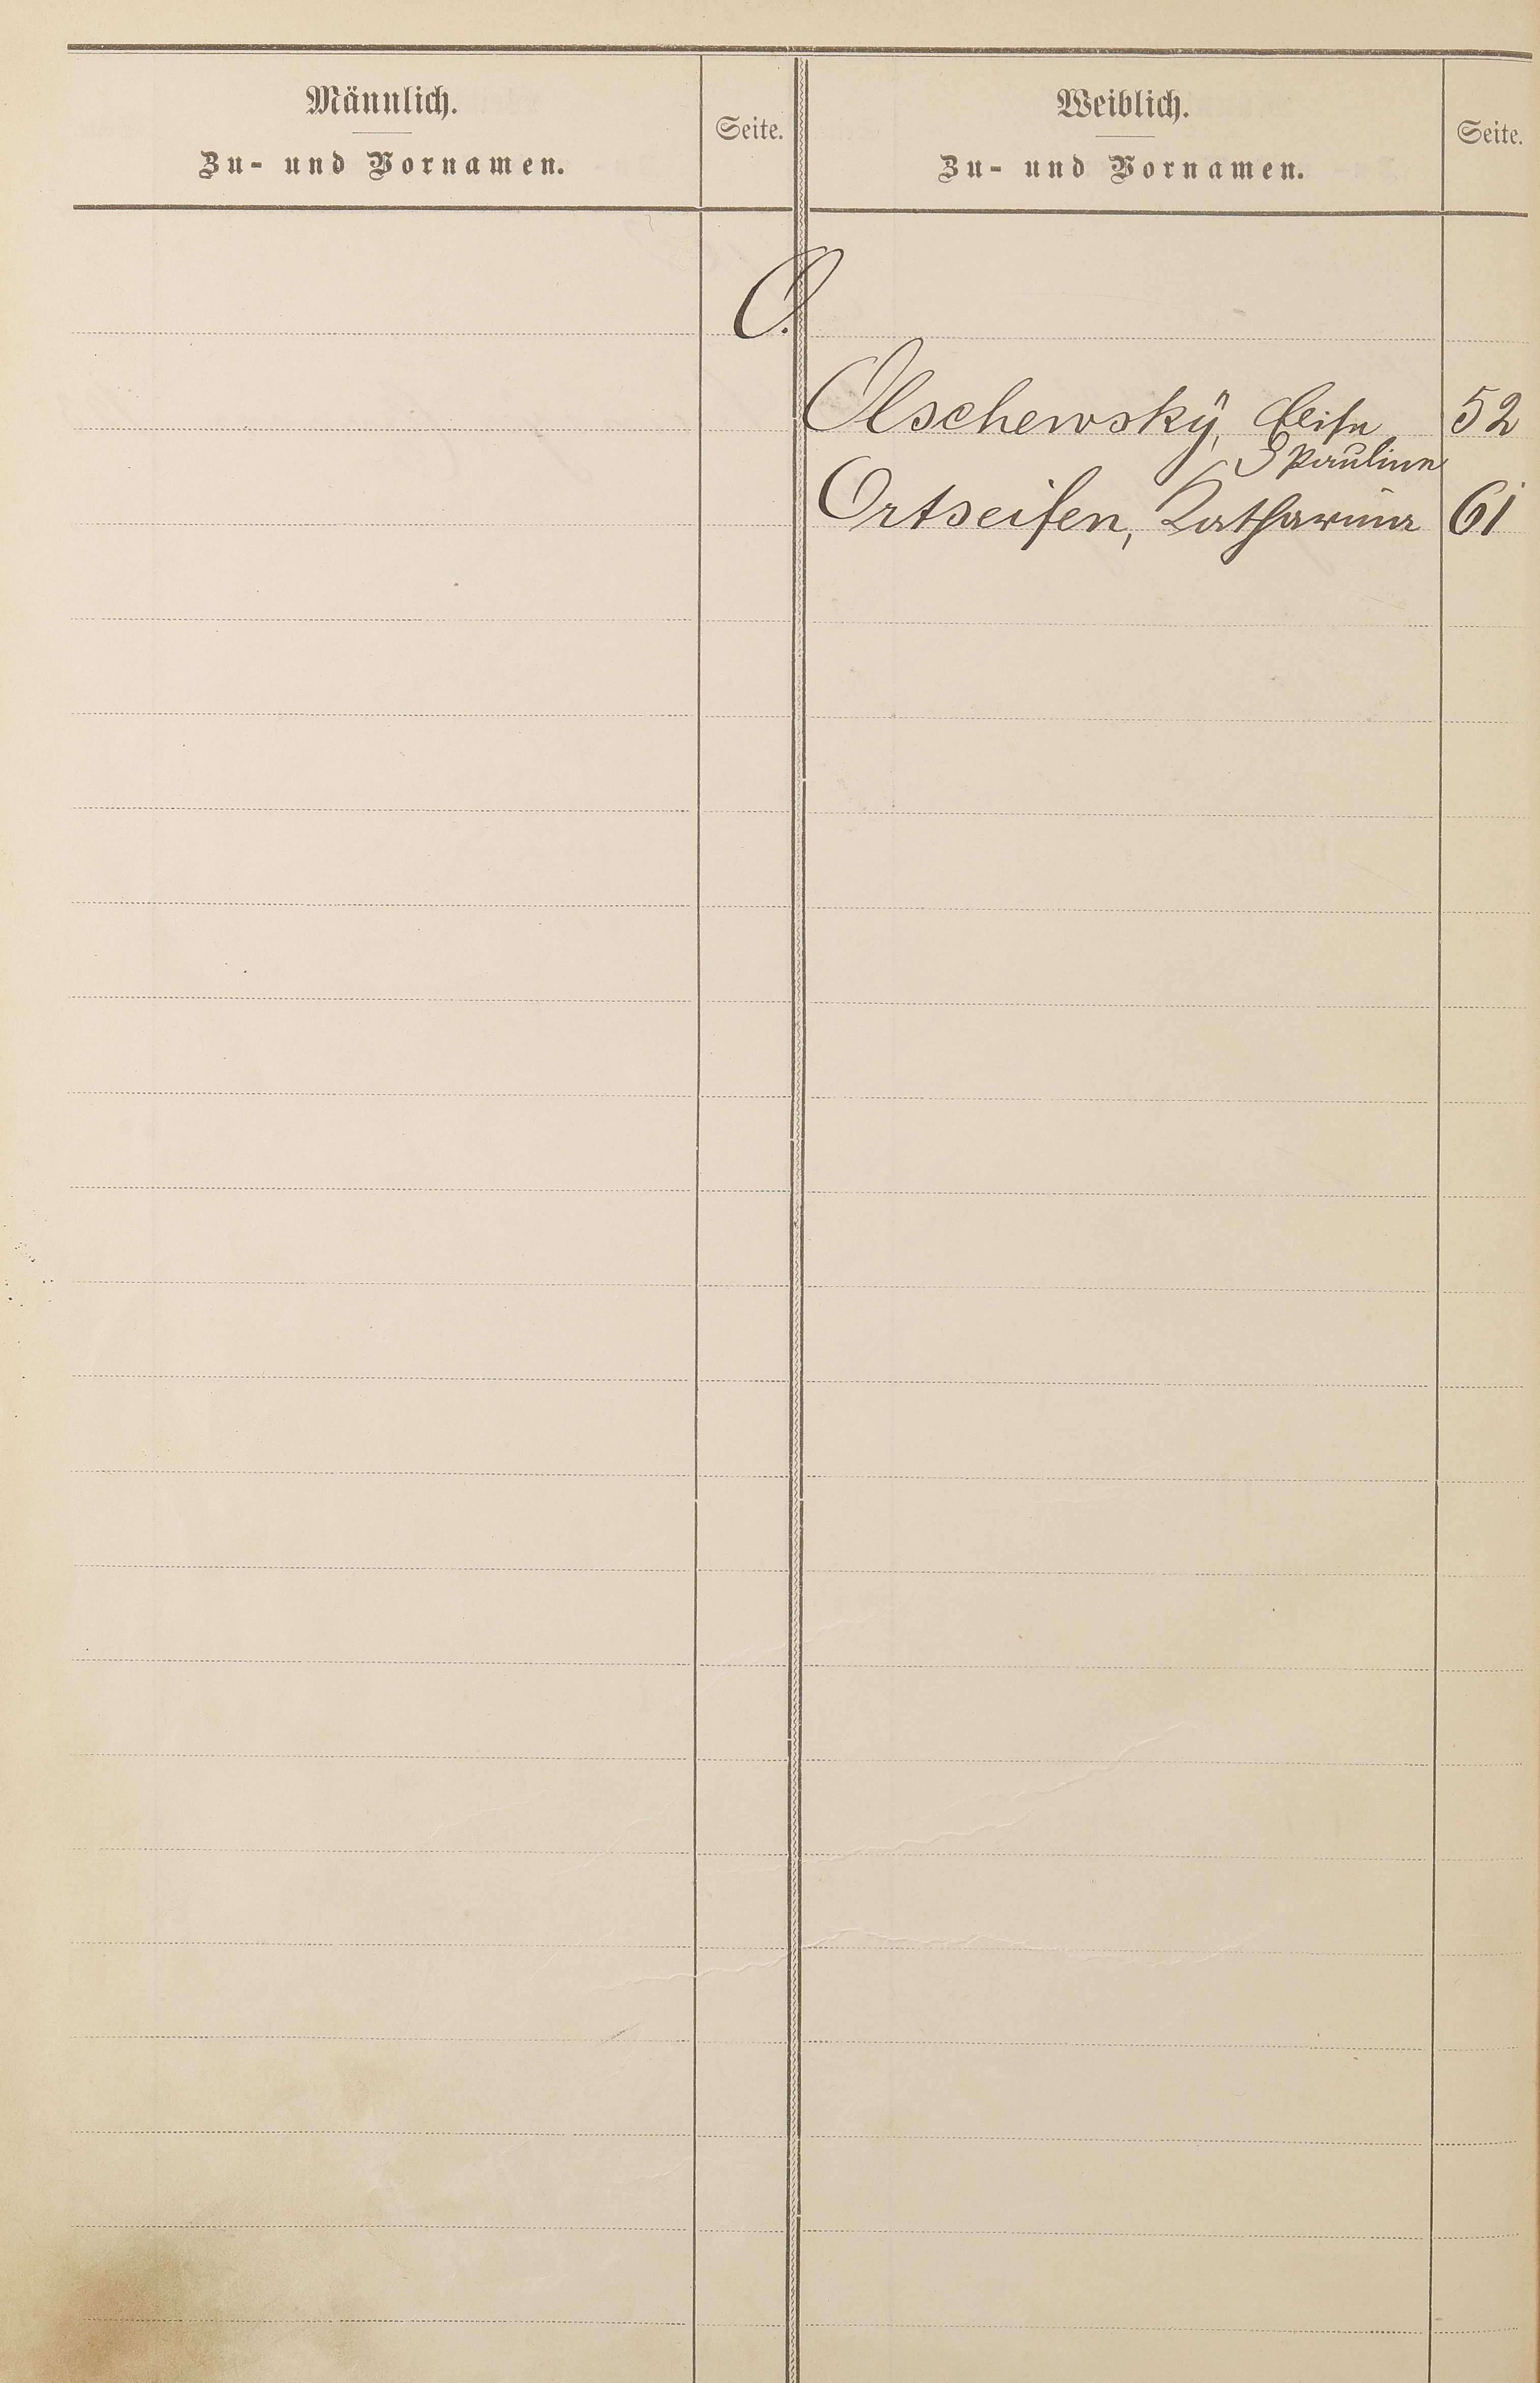 Männlich.
Zu- und Vornamen.
Seite.
Weiblich.
Zu- und Vornamen.
Seite.
O.
Olschewsky, 52
Pauline
Ortseifen, Katharina 61